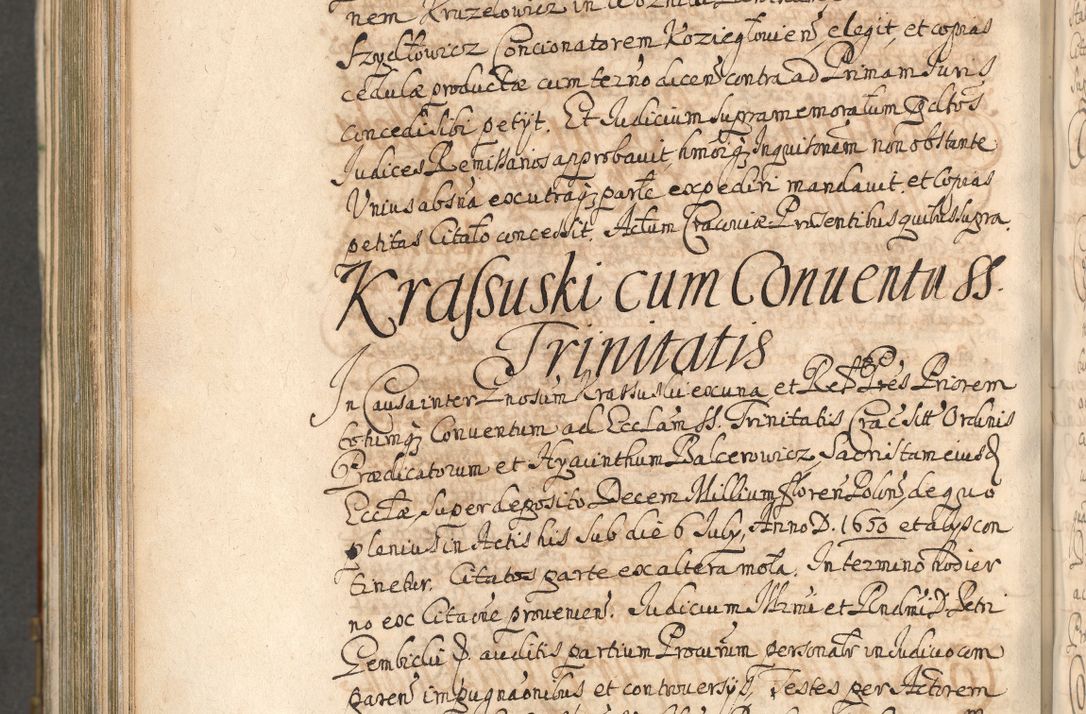 nem Kruzelowicz in Wozniki
Szydłowicz Concionatorem Koziegłowien, elegit, et copias
cedulæ productæ cum term̃o dicen̄ contra ad Primam Juris
concedi sibi petyt. Et Judicium supra memoratum
Judices Remissarios approbauit, hmõrq; Inquisitonem non obstante
Unius absña ex utraq; parte expediri mandauit, et Copias
petitas Citato concessit. Actum Cracouiæ Præsentibus quibus supra.
Krassuski cum Conuentu SS.
Trinitatis
In Causa inter Gnosum Krassuski ex una et Rẽd Pres Priorem
totumq; Conuentum ad Ecclam SS. Trinitatis Crac sitt Ordinis
Prædicatorum et Hyacinthum Balcerowicz, Sacristam eiusd
Ecclæ, super deposito Decem Millium floren Polon, de quo
plenius in Actis his sub die 6 July, Anno D. 1650 et alys con
tinetur. Citatos parte ex altera mota. In termino hodier
no ex Citaõne prouenien. Judicium Illrmi et Rndmi D. Petri
Gembicki E. auditis partium Procurũm personalr in Judicio com
paren impugnaõnibus et controuersys, Testes per Actorem